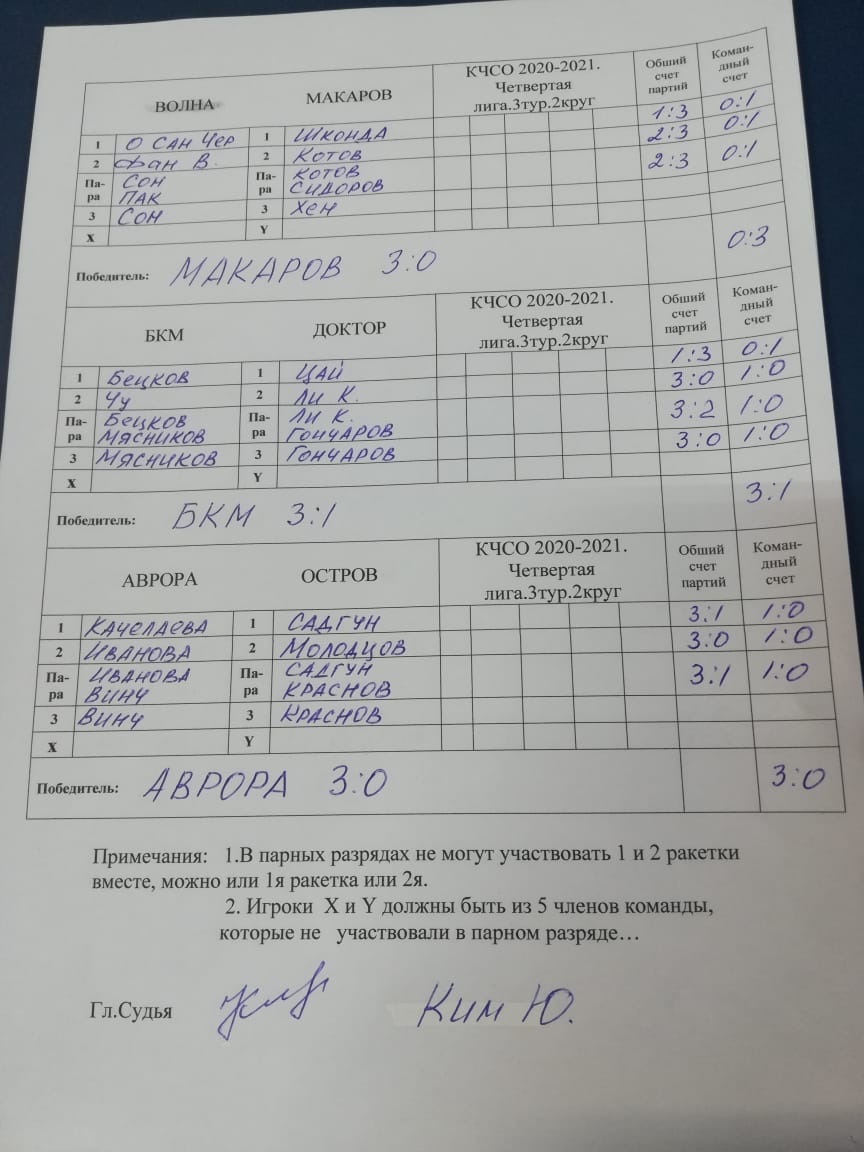 ВОЛНА МАКАРОВ КЧСО 2020-2021. Четвертая лига.3тур.2круг Обший счет партий Коман-дный счет
1 О САН ЧЕР 1 ШКОНДА 1:3 0:1
2 ФАН В. 2 КОТОВ 2:3 0:1
Па-ра СОН ПАК Па-ра КОТОВ СИДОРОВ 2:3 0:1
3 СОН 3 ХЕН
X Y
Победитель: МАКАРОВ 3:0 0:3
БКМ ДОКТОР КЧСО 2020-2021. Четвертая лига.3тур.2круг Обший счет партий Коман-дный счет
1 БЕЦКОВ 1 ЦАЙ 1:3 0:1
2 ЧУ 2 ЛИ К. 3:0 1:0
Па-ра БЕЦКОВ МЯСНИКОВ Па-ра ЛИ К. ГОНЧАРОВ 3:2 1:0
3 МЯСНИКОВ 3 ГОНЧАРОВ 3:0 1:0
X Y
Победитель: БКМ 3:1 3:1
АВРОРА ОСТРОВ КЧСО 2020-2021. Четвертая лига.3тур.2круг Обший счет партий Коман-дный счет
1 КАЧЕЛАЕВА 1 САДГУН 3:1 1:0
2 ИВАНОВА 2 МОЛОДЦОВ 3:0 1:0
Па-ра ИВАНОВА ВИНУ Па-ра САДГУН КРАСНОВ 3:1 1:0
3 ВИНУ 3 КРАСНОВ
X Y
Победитель: АВРОРА 3:0 3:0
Примечания: 1.В парных разрядах не могут участвовать 1 и 2 ракетки
вместе, можно или 1я ракетка или 2я.
2. Игроки X и Y должны быть из 5 членов команды,
которые не участвовали в парном разряде…
Гл.Судья Ким Ю.